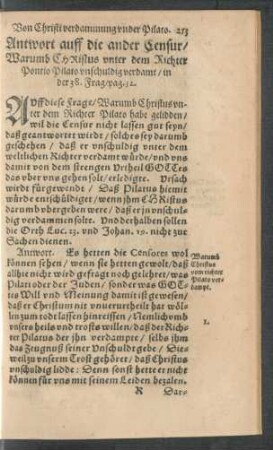 Von Christi verdammung vnder Pilato. 253
Antwort auff die ander Censur/
Warumb CHRistus vnter dem Richter
Pontio Pilato vnschuldig verdamt/ in
der 38. Frag/pag. 52.
AVff diese Frage/ Warumb Christus vn-
ter dem Richter Pilato habe gelidden/
wil die Censur nicht lassen gut seyn/
daß geantwortet wirdt/ solches sey darumb
geschehen/ daß er vnschuldig vnter dem
weltlichen Richter verdamt würde/ vnd vns
damit von dem strengen Vrtheil GOTTes
das vber vns gehen solt/ erledigte. Vrsach
wirdt fürgewendt/ Daß Pilatus hiemit
würde entschüldiget/ wenn ihm CHRistus
darumb vbergeben were/ daß er jn vnschul-
dig verdammen solte. Vnd derhalben sollen
die Orth Luc. 23. vnd Johan. 19. nicht zur
Sachen dienen.
Antwort. Es hetten die Censores wol
können sehen/ wenn sie hetten gewolt/ daß
allhie nicht wird gefragt noch gelehret/ was
Pilati oder der Juden/ sonder was GOT-
tes Will vnd Meinung damit ist gewesen/
daß er Christum mit vnuerurtheilt hat wöl-
len zum todt lassen hinreissen/ Nemlich vmb
vnsers heils vnd trosts willen/ daß der Rich-
ter Pilatus der jhn verdampte/ selbs ihm
das Zeugnuß seiner Vnschuldt gebe/ Die-
weil zu vnserm Trost gehöret/ daß Christus
vnschuldig lidde: Denn sonst hette er nicht
können für vns mit seinem Leiden bezalen.
R Dar-
Warumb
Christus
vom richter
Pilato ver-
dampt.
1.